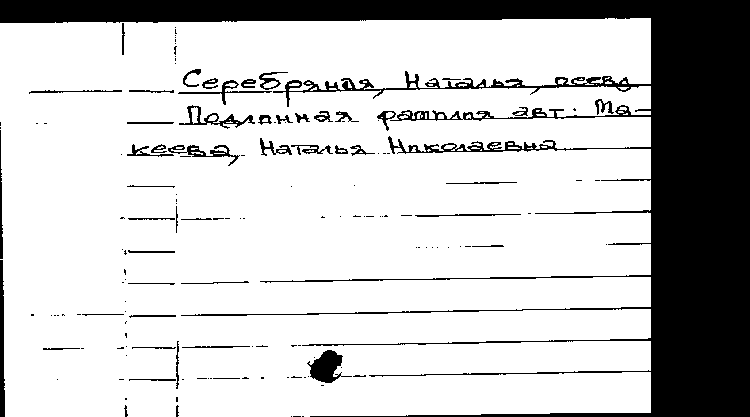 Серебряная, Наталья, псевд
Подлинная фамилия авт: Ма-
кеева, Наталья Николаевна